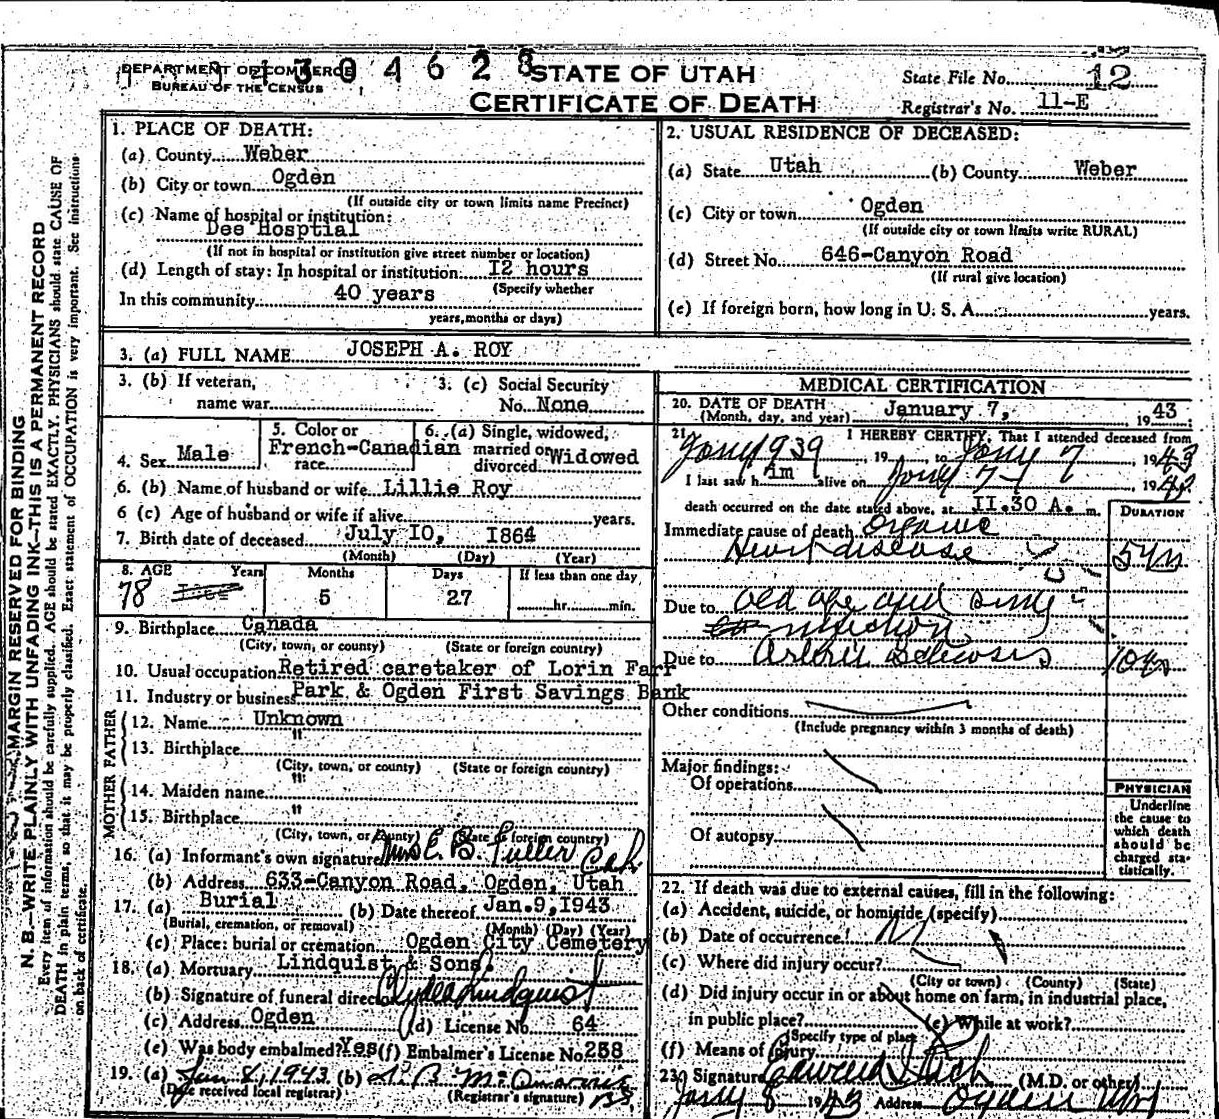 DEPARTMENT OF COMMERCE
BUREAU OF THE CENSUS
304628
STATE OF UTAH
CERTIFICATE OF DEATH
State File No. 12
Registrar's No. 11-E
MARGIN RESERVED FOR BINDING
N. B.—WRITE PLAINLY WITH UNFADING INK—THIS IS A PERMANENT RECORD
Every item of information should be carefully supplied. AGE should be stated EXACTLY. PHYSICIANS should state CAUSE OF
DEATH in plain terms, so that it may be properly classified. Exact statement of OCCUPATION is very important. See instructions
on back of certificate.
1. PLACE OF DEATH:
(a) County Weber
(b) City or town Ogden
(If outside city or town limits name Precinct)
(c) Name of hospital or institution:
Dee Hosptial
(If not in hospital or institution give street number or location)
(d) Length of stay: In hospital or institution: I2 hours
(Specify whether
In this community 40 years
years, months or days)
2. USUAL RESIDENCE OF DECEASED:
(a) State Utah (b) County Weber
(c) City or town Ogden
(If outside city or town limits write RURAL)
(d) Street No. 646-Canyon Road
(If rural give location)
(e) If foreign born, how long in U. S. A. years.
3. (a) FULL NAME JOSEPH A. ROY
3. (b) If veteran,
name war
3. (c) Social Security
No. None
4. Sex Male
5. Color or
French-Canadian
race
6. (a) Single, widowed,
married or
divorced Widowed
6. (b) Name of husband or wife Lillie Roy
6 (c) Age of husband or wife if alive years.
7. Birth date of deceased July I0, I864
(Month) (Day) (Year)
8. AGE Years Months Days If less than one day
78 5 27 hr. min.
9. Birthplace Canada
(City, town, or county) (State or foreign country)
10. Usual occupation Retired caretaker of Lorin Farr
11. Industry or business Park & Ogden First Savings Bank
FATHER
12. Name Unknown
13. Birthplace "
(City, town, or county) (State or foreign country)
MOTHER
14. Maiden name "
15. Birthplace "
(City, town, or county) (State or foreign country)
16. (a) Informant's own signature Mrs E. B. Fuller
(b) Address 633-Canyon Road, Ogden, Utah
17. (a) Burial (b) Date thereof Jan.9,I943
(Burial, cremation, or removal) (Month) (Day) (Year)
(c) Place: burial or cremation Ogden City Cemetery
18. (a) Mortuary Lindquist & Sons.
(b) Signature of funeral director Clyde Lindquist
(c) Address Ogden (d) License No. 64
(e) Was body embalmed? Yes (f) Embalmer's License No. 258
19. (a) Jan 8, 1943 (b)
(Date received local registrar) (Registrar's signature)
MEDICAL CERTIFICATION
20. DATE OF DEATH January 7, 19 43
(Month, day, and year)
21. I HEREBY CERTIFY, That I attended deceased from
Jany 1939, 19 , to Jany 7, 19 43
I last saw h im alive on Jany 7, 19 43
death occurred on the date stated above, at II.30 A. m.
DURATION
Immediate cause of death Organic
Heart disease 5 yrs
Due to old age and
Due to Arterio Sclerosis 10 yrs
Other conditions
(Include pregnancy within 3 months of death)
Major findings:
Of operations
Of autopsy
PHYSICIAN
Underline
the cause to
which death
should be
charged sta-
tistically.
22. If death was due to external causes, fill in the following:
(a) Accident, suicide, or homicide (specify)
(b) Date of occurrence
(c) Where did injury occur?
(City or town) (County) (State)
(d) Did injury occur in or about home on farm, in industrial place,
in public place? (e) While at work?
(Specify type of place)
(f) Means of injury
23. Signature (M.D. or other)
Jany 8 1943 Address Ogden Utah